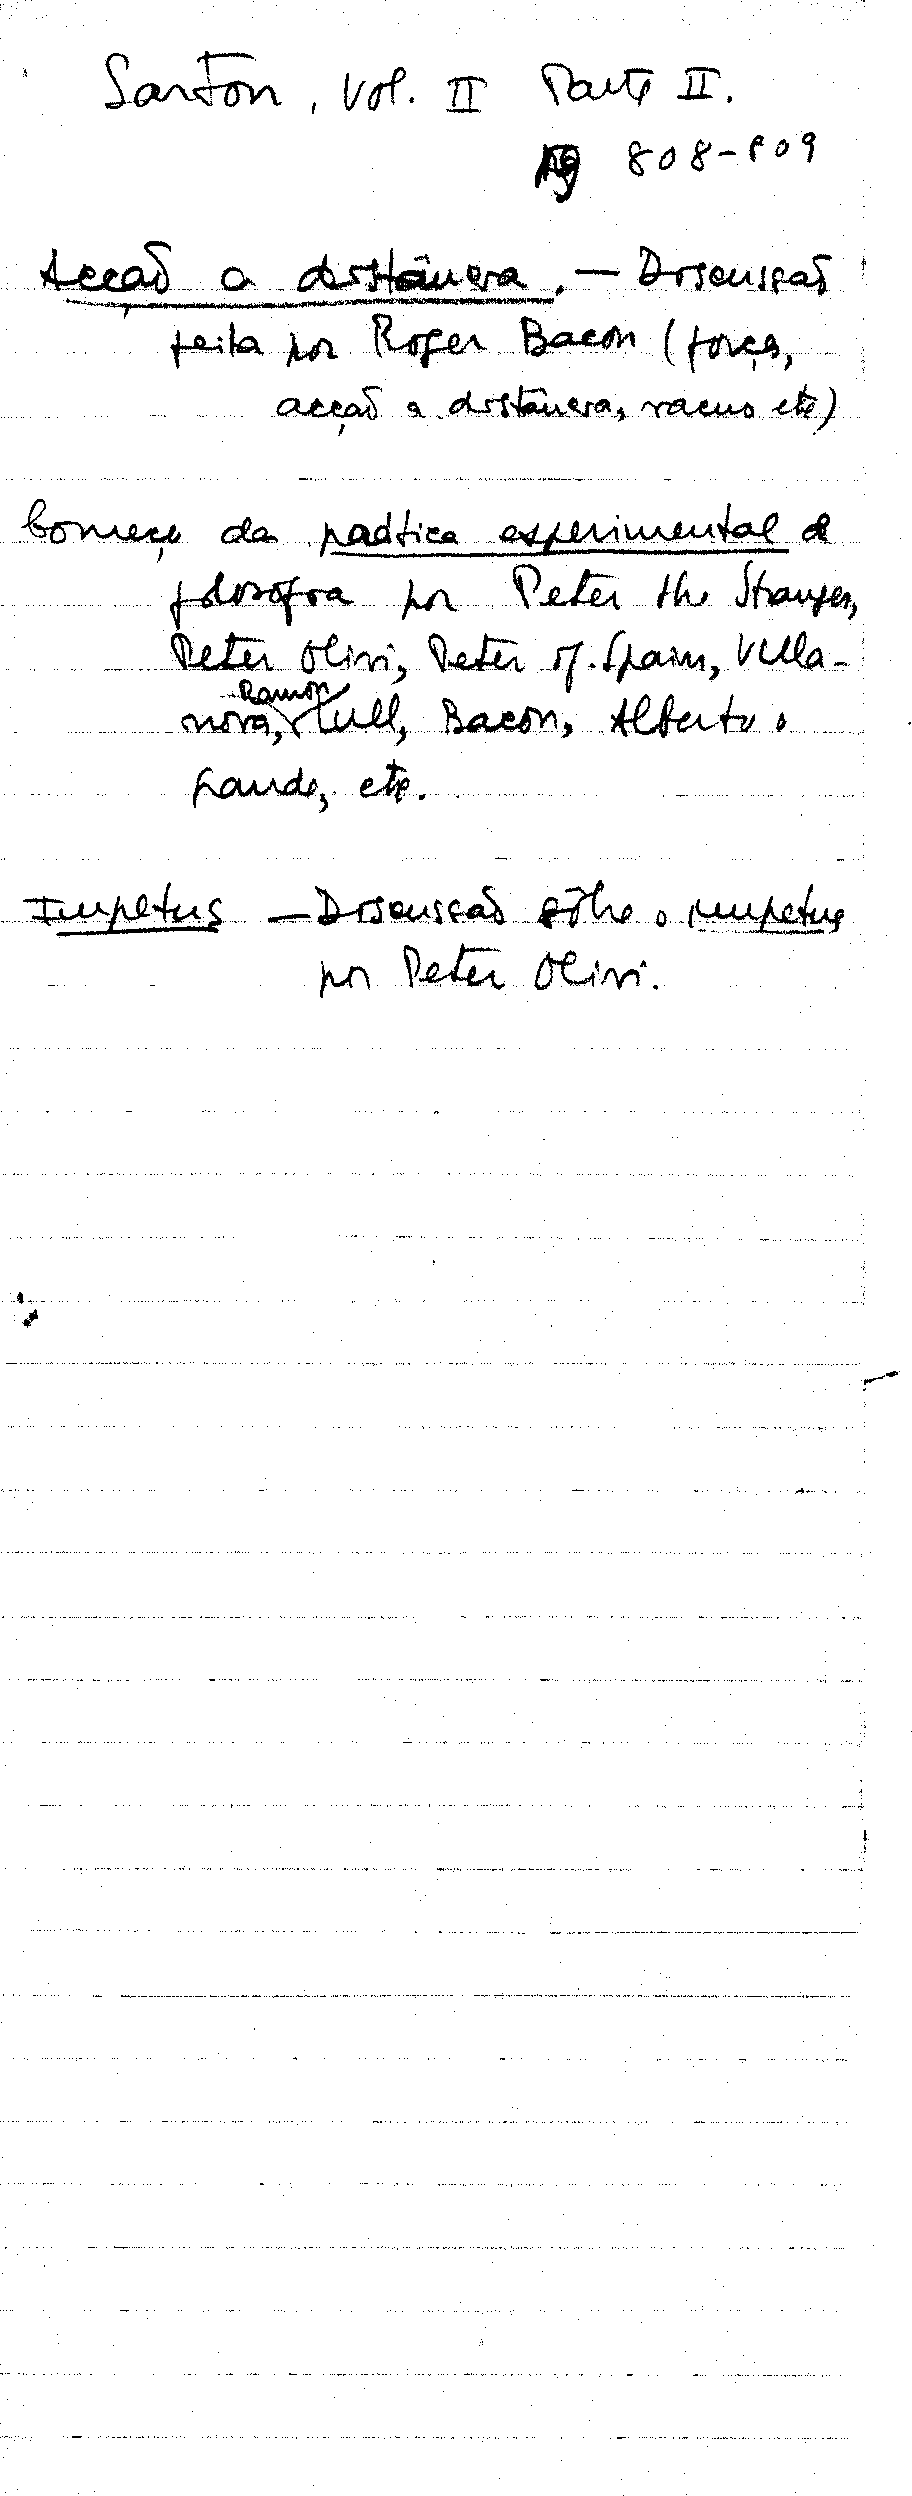 Sarton, Vol. II Parte II.
Pg 808-809
Acção a distância. — Discussão
feita por Roger Bacon (força,
acção a distância, vacuo etc)
Começo da prática experimental de
filosofia por Peter the Stranger,
Peter Olivi, Peter of Spain, Villa-
nova, Ramon Lull, Bacon, Alberto o
Grande, etc.
Impetus — Discussão sôbre o impetus
por Peter Olivi.